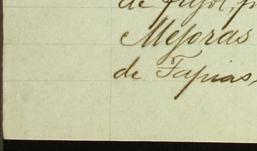 de
Mejoras
de Tapias,